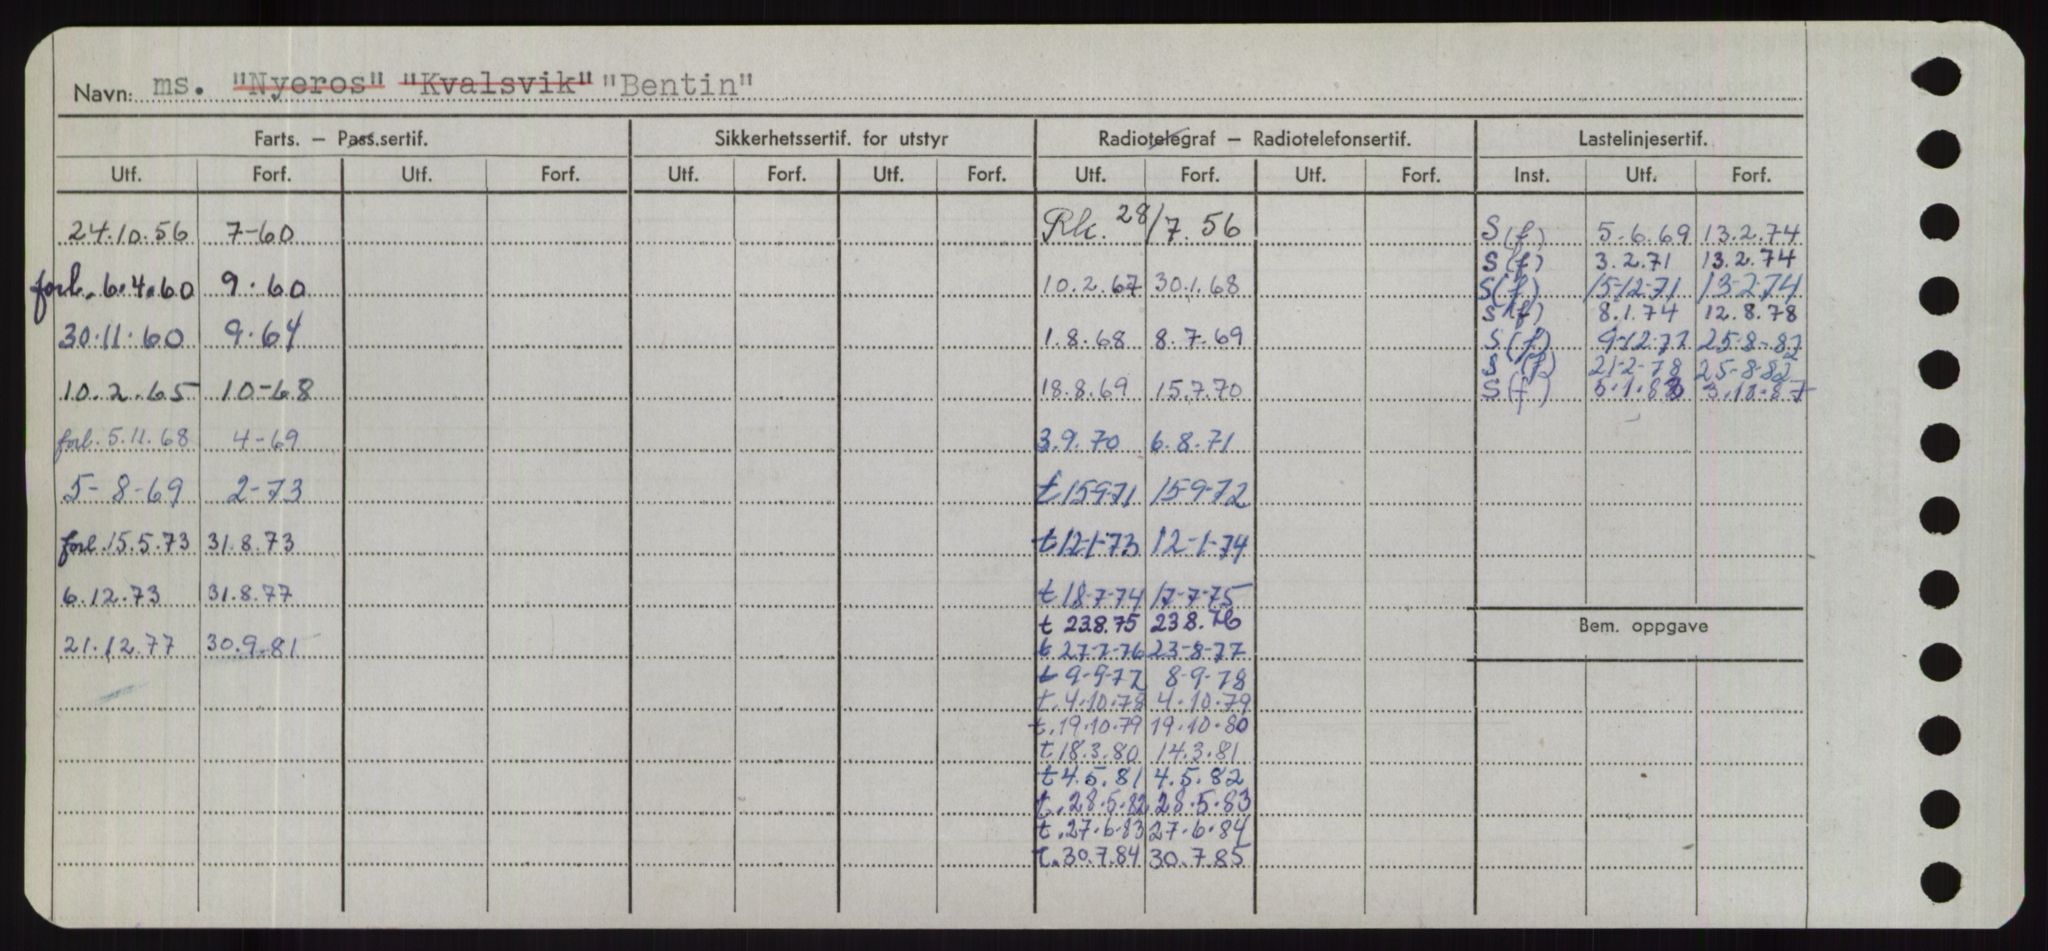 Navn: ms. "Nyeros" "Kvalsvik" "Bentin"
Farts. — Pass.sertif. Sikkerhetssertif. for utstyr Radiotelegraf — Radiotelefonsertif. Lastelinjesertif.
Utf. Forf. Utf. Forf. Utf. Forf. Utf. Forf. Utf. Forf. Utf. Forf. Inst. Utf. Forf.
24.10.56 7-60
forl. 6.4.60 9.60
30.11.60 9.64
10.2.65 10-68
forl. 5.11.68 4-69
5-8-69 2-73
forl. 15.5.73 31.8.73
6.12.73 31.8.77
21.12.77 30.9.81
Rk. 28/7.56
10.2.67 30.1.68
1.8.68 8.7.69
18.8.69 15.7.70
3.9.70 6.8.71
t 15-9-71 15-9-72
t 12-1-73 12-1-74
t 18-7-74 17-7-75
t 23.8.75 23.8.76
t 27-7-76 23-8-77
t 9-9-77 8-9-78
t. 4.10.78 4.10.79
t. 19.10.79 19.10.80
t 18.3.80 14.3.81
t 4.5.81 4.5.82
t. 28.5.82 28.5.83
t. 27.6.83 27.6.84
t. 30.7.84 30.7.85
S (f) 5.6.69 13.2.74
S (f) 3.2.71 13.2.74
S (f) 15-12-71 13-2-74
S (f) 8.1.74 12.8.78
S (f) 9-12-77 25-8-82
S (f) 21-2-78 25-8-82
S (f) 5.1.83
Bem. oppgave